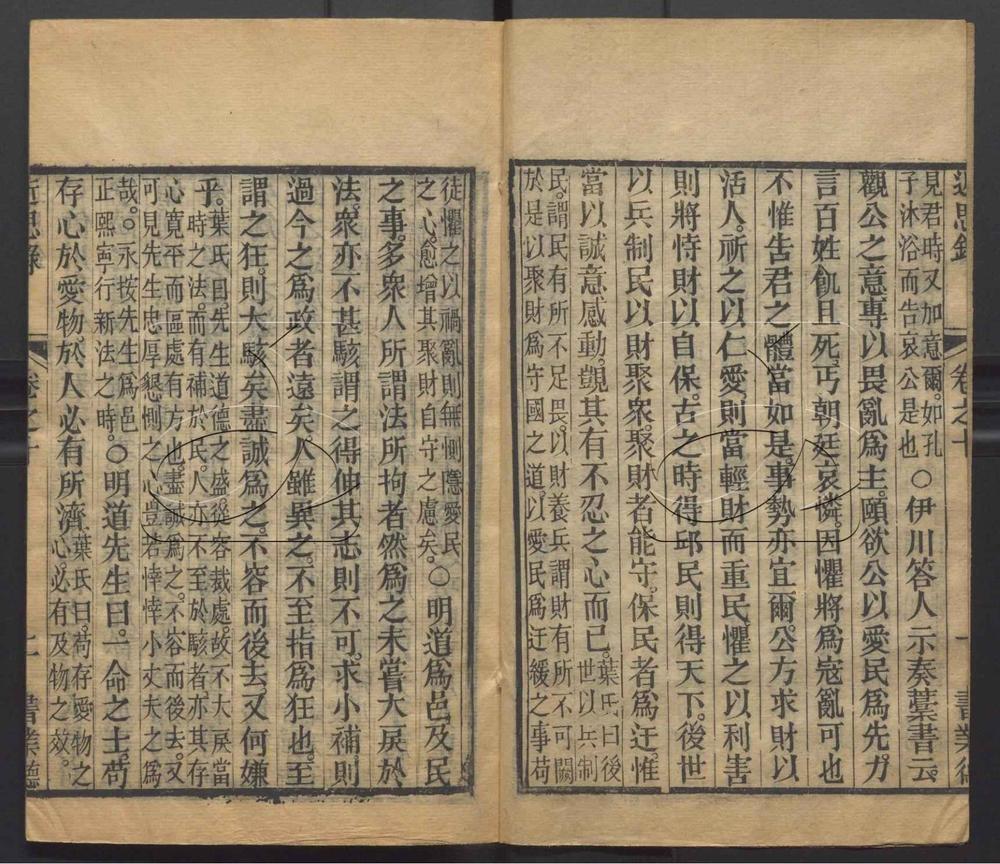 近思錄 卷之十 書業德
見君時又加意爾如孔
子沐浴而告哀公是也
○伊川答人示奏藁書云
觀公之意專以畏亂爲主頤欲公以愛民爲先力
言百姓飢且死丐朝廷哀憐因懼將爲寇亂可也
不惟告君之體當如是事勢亦宜爾公方求財以
活人祈之以仁愛則當輕財而重民懼之以利害
則將恃財以自保古之時得邱民則得天下後世
以兵制民以財聚衆聚財者能守保民者爲迂惟
當以誠意感動覬其有不忍之心而已
葉氏曰後世以兵制
民謂民有所不足畏以財養兵謂財有所不可闕
於是以聚財爲守國之道以愛民爲迂緩之事苟
徒懼之以禍亂則無惻隱愛民
之心愈增其聚財自守之慮矣
○明道爲邑及民
之事多衆人所謂法所拘者然爲之未嘗大戾於
法衆亦不甚駭謂之得伸其志則不可求小補則
過今之爲政者遠矣人雖異之不至指爲狂也至
謂之狂則大駭矣盡誠爲之不容而後去又何嫌
乎
葉氏曰先生道德之盛從容裁處故不大戾當
時之法而有補於民人亦不至於駭者亦其存
心寬平而區處有方也盡誠爲之不容而後去又
可見先生忠厚懇惻之心豈若悻悻小丈夫之爲
哉○永按先生爲邑
正熙寧行新法之時
○明道先生曰一命之士苟
存心於愛物於人必有所濟
葉氏曰苟存愛物之
心必有及物之效
近思錄 卷之十 書業德